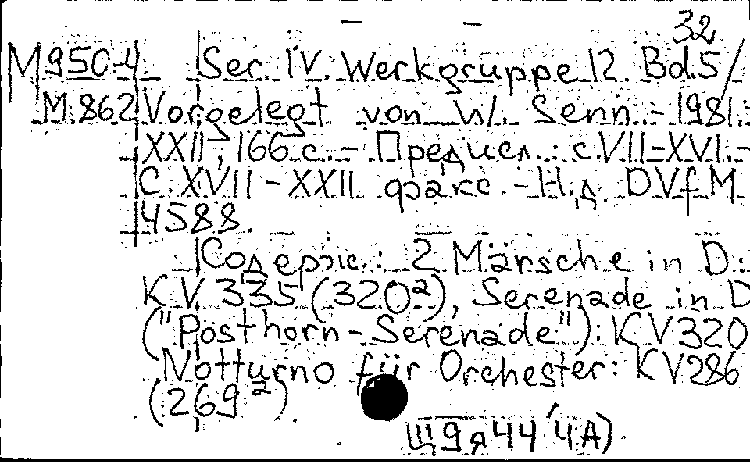 32
М950-4 Ser. IV. Werkgruppe 12. Bd.5/
М.862 Vorgelegt von W. Senn.-1981.
XXII, 166 с. - Предисл.: с. VII-XVI.-
С. XVII-XXII факс. - Н.д. DVfM
4588.
Содерж.: 2 Märsche in D:
KV 335 (320²), Serenade in D
("Posthorn-Serenade"): KV 320
Notturno für Orchester: KV 286
(269²)
Щ9я44'4А).